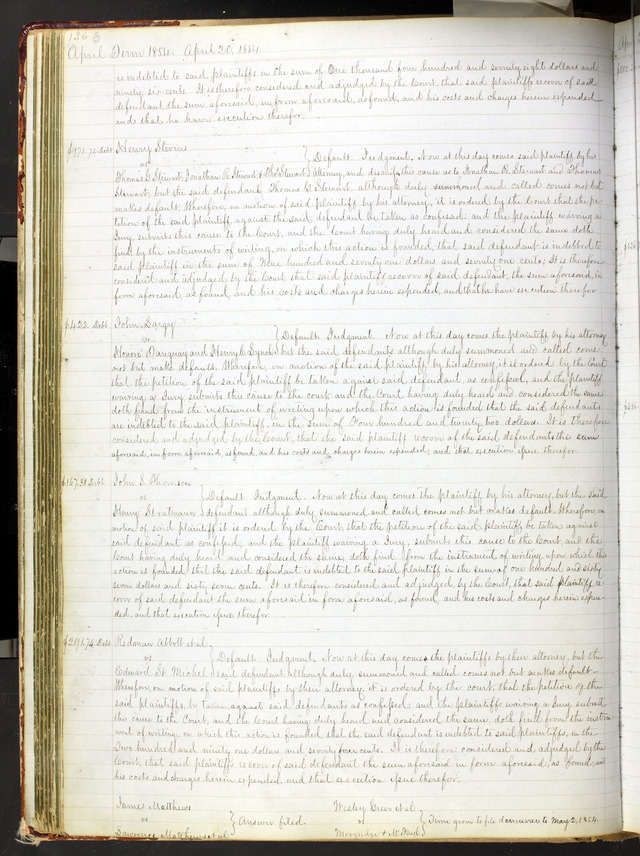 136
April Term 1854. April 20, 1854
is indebted to said plaintiffs in the sum of One thousand four hundred and seventy eight dollars and
ninety six cents. It is therefore considered and adjudged by the Court, that said plaintiffs recover of said
defendant the sum aforesaid, in form aforesaid, as found, and his costs and charges herein expended
and that he have execution therefor.
$971.71 Debt Henry Stevins
vs } Default Judgment. Now at this day comes said plaintiff by his
Thomas G. Stewart, Jonathan R. Stewart & Thos Stewart attorney, and dismisses this cause as to Jonathan R. Stewart and Thomas
Stewart, but the said defendant, Thomas G. Stewart, although duly summoned and called comes not but
makes default. Wherefore, on motion of said plaintiff by his attorney, it is ordered by the Court that the pe-
tition of the said plaintiff, against the said, defendant be taken as confessed; and the plaintiff waiving a
Jury, submits this cause to the Court, and the Court having duly heard and considered the same doth
find by the instrument of writing, on which this action is founded, that said defendant is indebted to
said plaintiff in the sum of Nine hundred and seventy one dollars and seventy one cents; It is therefore
considered and adjudged by the Court, that said plaintiff recover of said defendant, the sum aforesaid, in
form aforesaid, as found, and his costs and charges herein expended, and that he have execution therefor.
$422. Debt John Largy
vs } Default Judgment. Now at this day comes the plaintiff by his attorney
Honoré Danguay and Henry C. Lynch but the said defendants although duly summoned and called come
not but make default. Wherefore, on motion of the said plaintiff by his attorney, it is ordered by the Court
that the petition of the said plaintiff be taken against said defendant, as confessed, and the plaintiff
waiving a Jury submits this cause to the court and the Court having duly heard and considered the same
doth find from the instrument of writing upon which this action is founded that the said defendants
are indebted to the said plaintiff, in the sum of Four hundred and twenty two dollars. It is therefore
considered and adjudged by the Court, that the said plaintiff recover of the said defendants the sum
aforesaid, in form aforesaid, as found, and his costs and charges herein expended; and that execution issue therefor.
$167.38 Debt John S. Thomson
vs } Default Judgment. Now at this day comes the plaintiff by his attorney, but the said
Henry Stratmann defendant although duly summoned and called comes not but makes default. Wherefore, on
motion of said plaintiff it is ordered by the Court, that the petition of the said plaintiff be taken against
said defendant as confessed, and the plaintiff waiving a Jury, submits this cause to the Court, and the
Court having duly heard and considered the same, doth find from the instrument of writing upon which this
action is founded, that the said defendant is indebted to the said plaintiff in the sum of one hundred and sixty
seven dollars and sixty seven cents. It is therefore considered and adjudged by the Court, that said plaintiff re-
cover of said defendant the sum aforesaid in form aforesaid, as found, and his costs and charges herein expen-
ded, and that execution issue therefor.
$291.74 Debt Redman Abbott et al.
vs } Default Judgment. Now at this day comes the plaintiffs by their attorney, but the
Edward St. Michel said defendant although duly summoned and called comes not but makes default.
Wherefore, on motion of said plaintiffs by their attorney, it is ordered by the court that the petition of the
said plaintiffs, be taken against said defendants as confessed and the plaintiffs waiving a Jury submit
this cause to the Court, and the Court having duly heard and considered the same, doth find from the instru-
ment of writing, on which this action is founded that the said defendant is indebted to said plaintiffs, in the
Two hundred and ninety one dollars and seventy four cents. It is therefore considered and adjudged by the
Court, that said plaintiffs recover of said defendant the sum aforesaid in form aforesaid, as found, and
his costs and charges herein expended, and that execution issue therefor.
James Matthews
vs } Answer filed.
Lawrence Matthews et al
Wesley Greer et al
vs } Time given to file demurrer to May 2, 1854.